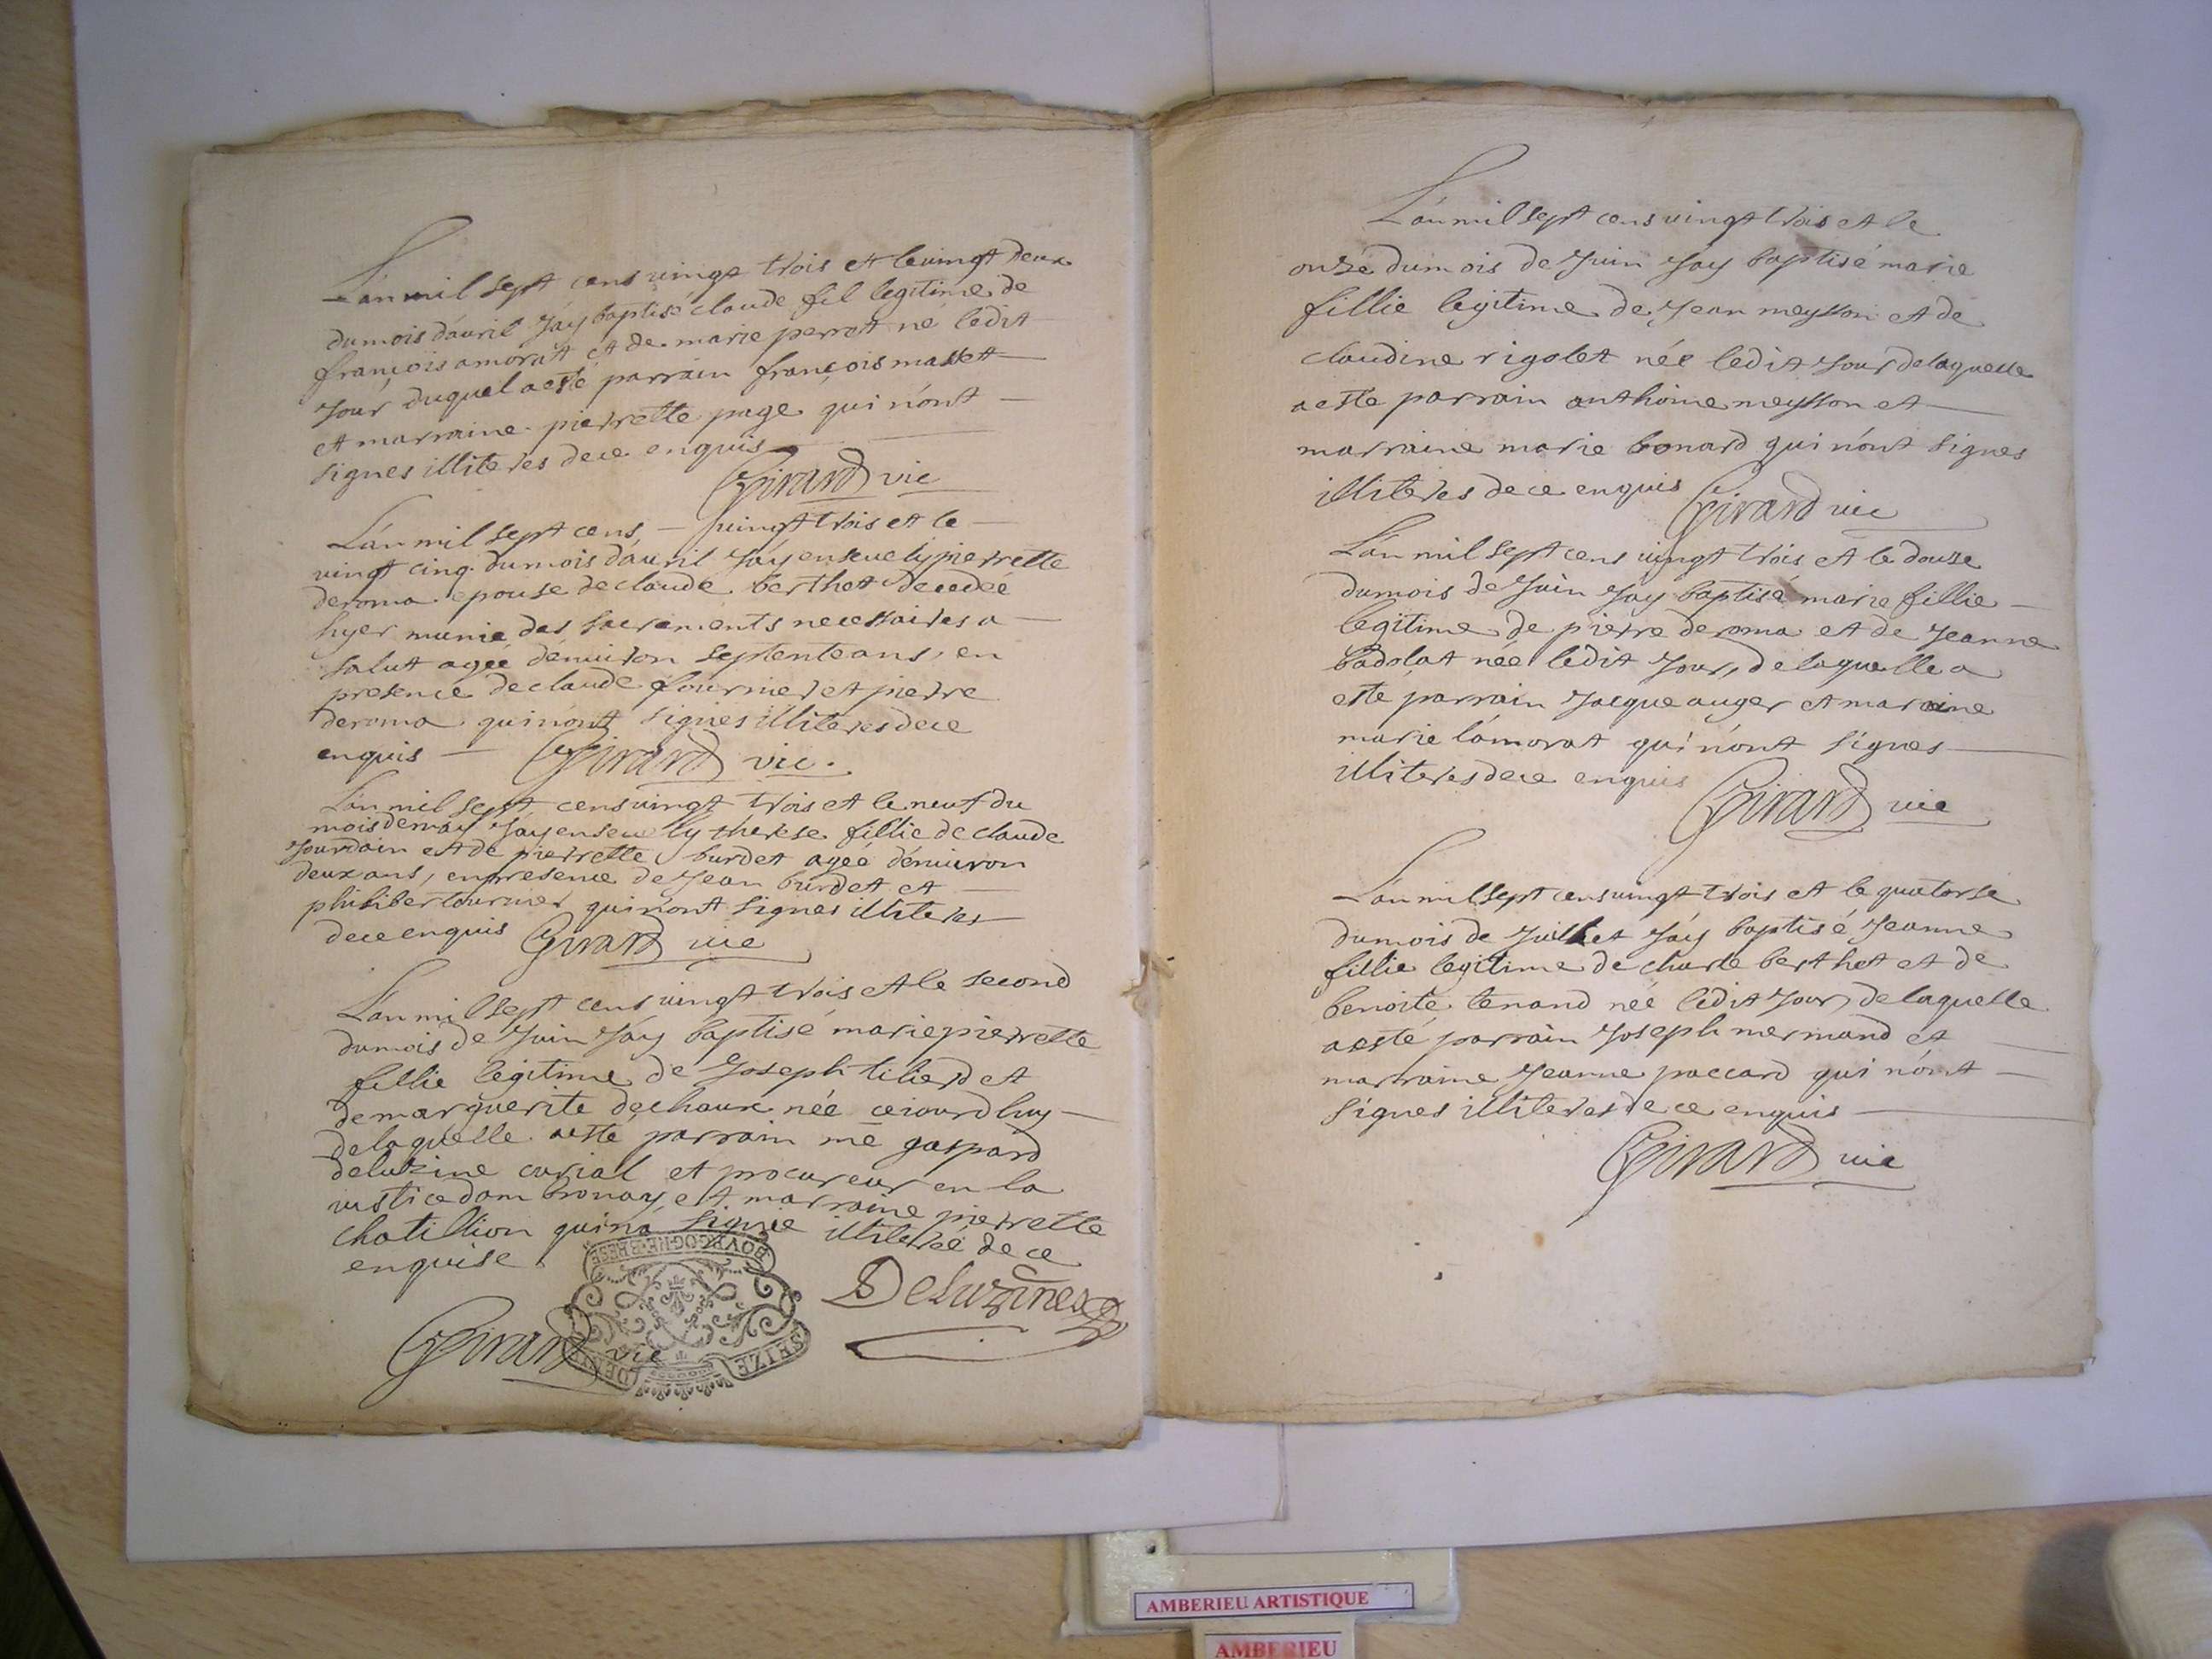 L'an mil sept cens vingt trois et le vingt deux
du mois d'auril J'ay baptisé claude fil legitime de
françois amorat et de marie perrat né ledit
Jour duquel a esté parrain françois massett
et marraine pierrette page qui n'ont
signes illiteres de ce enquis
Girard vic
L'an mil sept cens — vingt trois et le —
vingt cinq du mois d'auril J'ay enseuely pierrette
deroma epouse de claude berthet decedeé
hyer munie des sacrements necessaires a
salut ageé d'enuiron septente ans, en
presence de claude fournier et pierre
deroma qui n'ont signes illiteres de ce
enquis — Girard vic.
L'an mil sept cens vingt trois et le neuf du
mois de may J'ay enseuely therese fillie de claude
Jourdain et de pierrette burdet ageé d'enuiron
deux ans, en presence de Jean burdet et
philibert tournier qui n'ont signes illiteres
de ce enquis Girard vic
L'an mil sept cens vingt trois et le second
du mois de Juin J'ay baptisé marie pierrette
fillie legitime de Joseph tilierd et
de marguerite dechaux née ceiourdhuy
de laquelle a esté parrain me gaspard
deluzine curial et procureur en la
iustice dambronay et marraine pierrette
chatillion qui n'a signie illiteré de ce
enquise
BOVRGOGNE·BRESSE
Deluzines
Girard vic
SEIZE DENIE
L'an mil sept cens vingt trois et le
onze du mois de Juin J'ay baptisé marie
fillie legitime de Jean meysson et de
claudine rigolet née ledit Jour de laquelle
a esté parrain anthoine meysson et
marraine marie bonard qui n'ont signes
illiteres de ce enquis Girard vic
L'an mil sept cens vingt trois et le douze
du mois de Juin J'ay baptisé marie fillie
legitime de pierre deroma et de Jeanne
badolat née ledit Jour, de laquelle a
esté parrain Jacque auger et maraine
marie l'amorat qui n'ont signes
illiteres de ce enquis Girard vic
L'an mil sept cens vingt trois et le quatorse
du mois de Juillet J'ay baptisé Jeanne
fillie legitime de charle berthet et de
benoite tenand née ledit Jour, de laquelle
a esté parrain Joseph mermand et
marraine Jeanne paccard qui n'ont
signes illiteres de ce enquis
Girard vic
AMBERIEU ARTISTIQUE
AMBERIEU